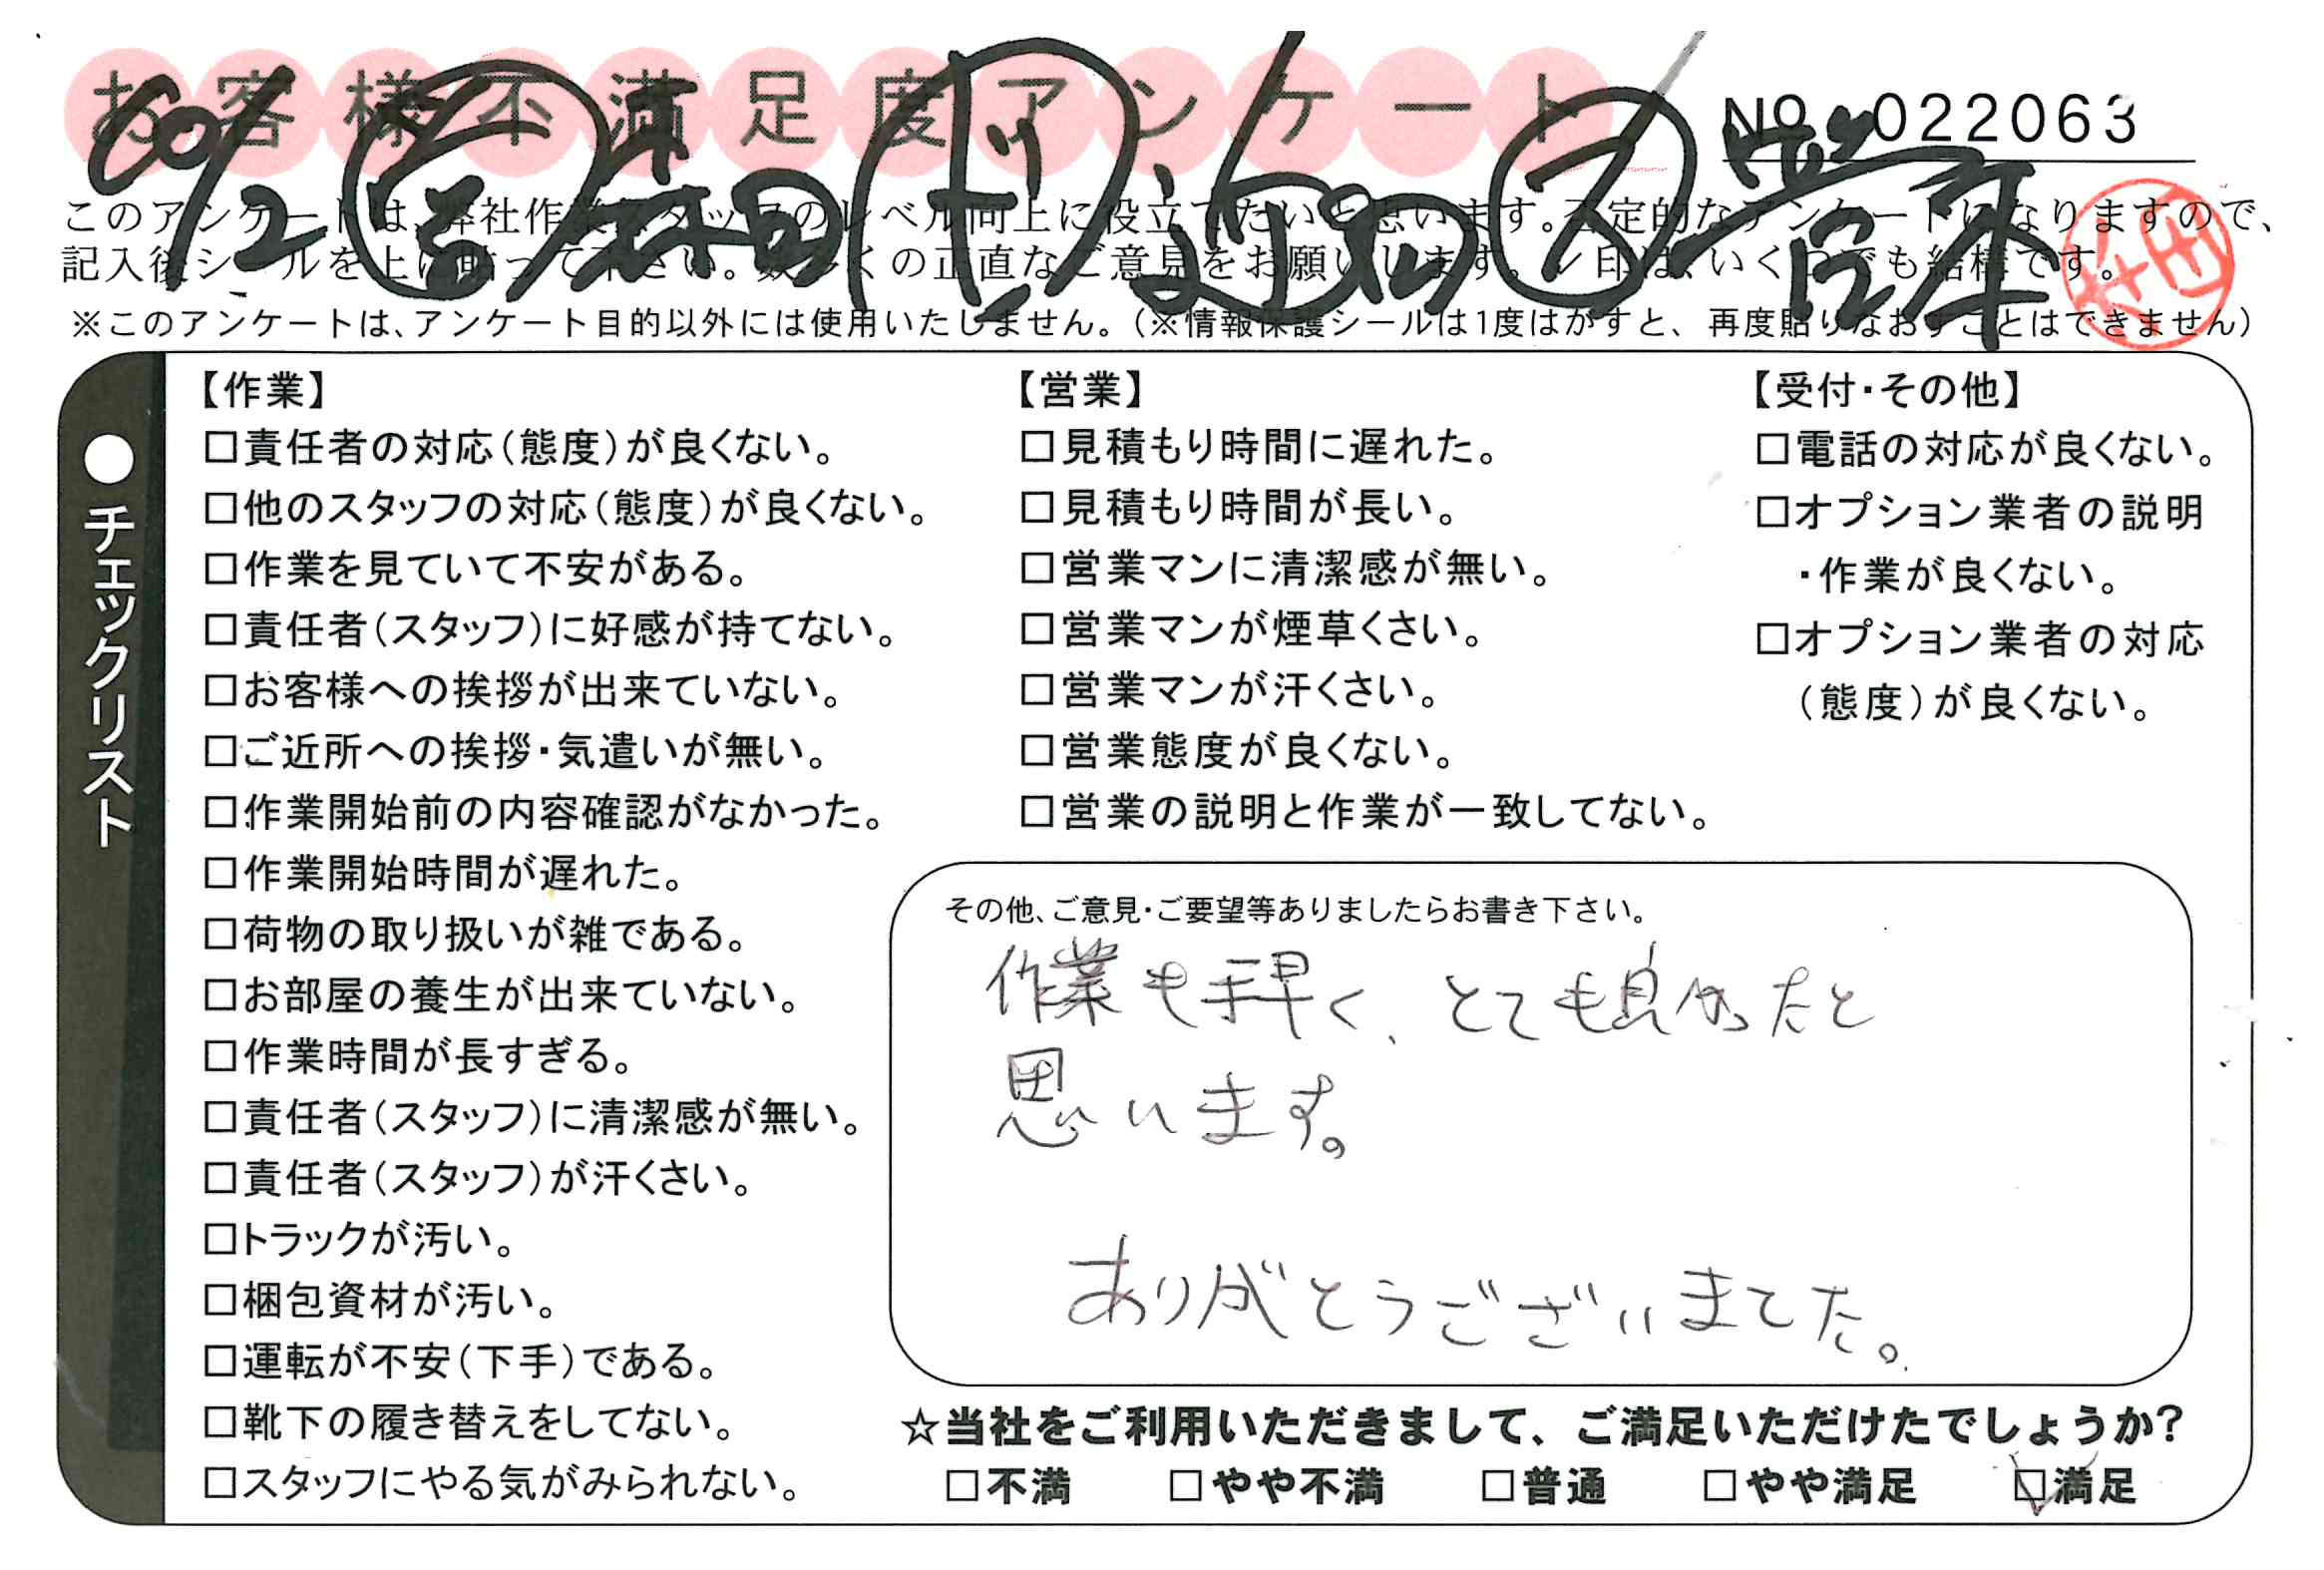 お客様不満足度アンケート
No. 022063
このアンケートは、弊社作業スタッフのレベル向上に役立てたいと思います。否定的なアンケートになりますので、
記入後シールを上に貼って下さい。数多くの正直なご意見をお願いします。レ印は、いくつでも結構です。
※このアンケートは、アンケート目的以外には使用いたしません。（※情報保護シールは1度はがすと、再度貼りなおすことはできません）
●チェックリスト
【作業】
□責任者の対応（態度）が良くない。
□他のスタッフの対応（態度）が良くない。
□作業を見ていて不安がある。
□責任者（スタッフ）に好感が持てない。
□お客様への挨拶が出来ていない。
□ご近所への挨拶・気遣いが無い。
□作業開始前の内容確認がなかった。
□作業開始時間が遅れた。
□荷物の取り扱いが雑である。
□お部屋の養生が出来ていない。
□作業時間が長すぎる。
□責任者（スタッフ）に清潔感が無い。
□責任者（スタッフ）が汗くさい。
□トラックが汚い。
□梱包資材が汚い。
□運転が不安（下手）である。
□靴下の履き替えをしてない。
□スタッフにやる気がみられない。
【営業】
□見積もり時間に遅れた。
□見積もり時間が長い。
□営業マンに清潔感が無い。
□営業マンが煙草くさい。
□営業マンが汗くさい。
□営業態度が良くない。
□営業の説明と作業が一致してない。
【受付・その他】
□電話の対応が良くない。
□オプション業者の説明
・作業が良くない。
□オプション業者の対応
（態度）が良くない。
その他、ご意見・ご要望等ありましたらお書き下さい。
作業も手早く、とても良かったと
思います。
ありがとうございました。
☆当社をご利用いただきまして、ご満足いただけたでしょうか？
□不満 □やや不満 □普通 □やや満足 ☑満足